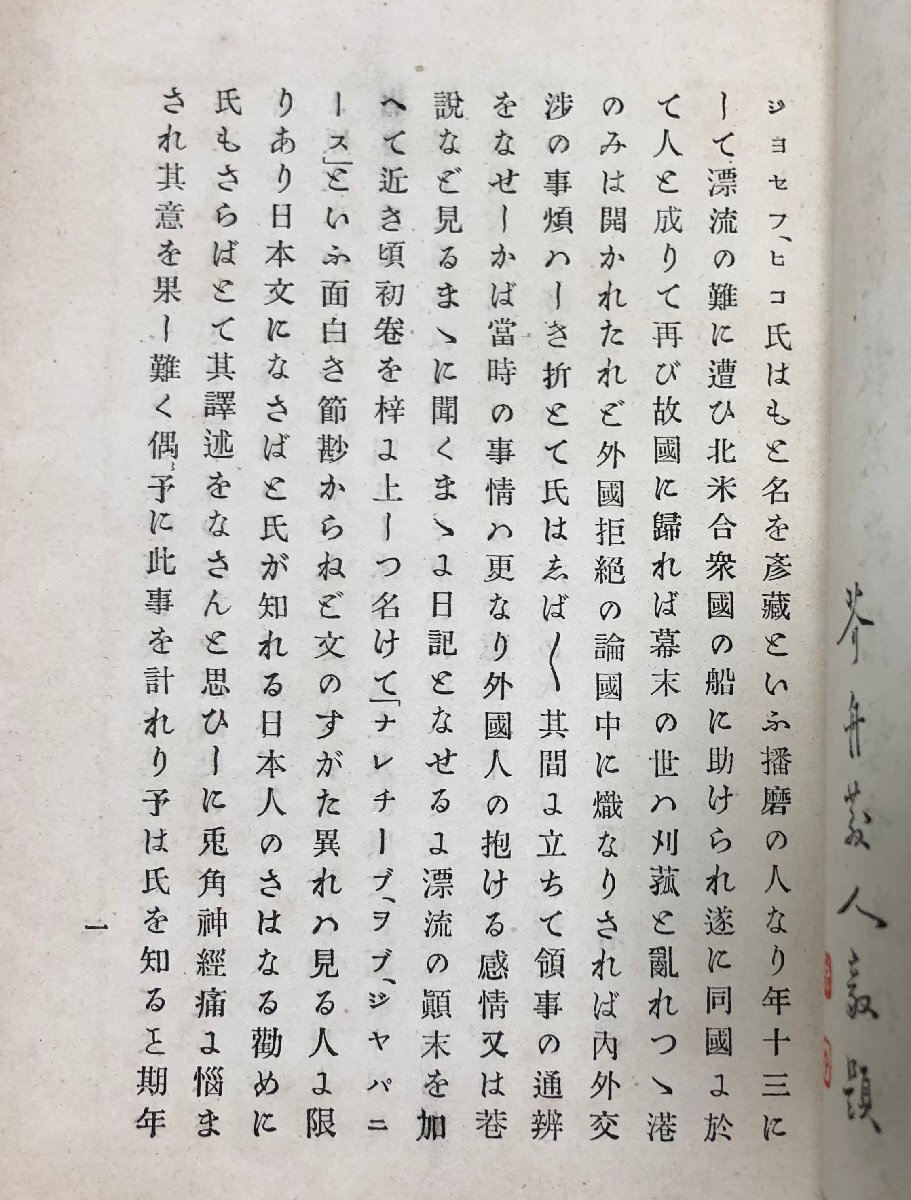 ジヨセフ、ヒコ氏はもと名を彥藏といふ播磨の人なり年十三に
して漂流の難に遭ひ北米合衆國の船に助けられ遂に同國に於
て人と成りて再び故國に歸れば幕末の世ハ刈菰と亂れつゝ港
のみは開かれたれど外國拒絕の論國中に熾なりされば內外交
涉の事煩ハしき折とて氏はゑば〱其間に立ちて領事の通辨
をなせしかば當時の事情ハ更なり外國人の抱ける感情又は巷
說など見るまゝに聞くまゝに日記となせるに漂流の顚末を加
へて近き頃初卷を梓に上しつ名けて「ナレチーブ、ヲブ、ジヤパニ
ース」といふ面白き節尠からねど文のすがた異れハ見る人に限
りあり日本文になさばと氏が知れる日本人のさはなる勸めに
氏もさらばとて其譯述をなさんと思ひしに兎角神經痛に惱ま
され其意を果し難く偶〻予に此事を計れり予は氏を知ると期年
一